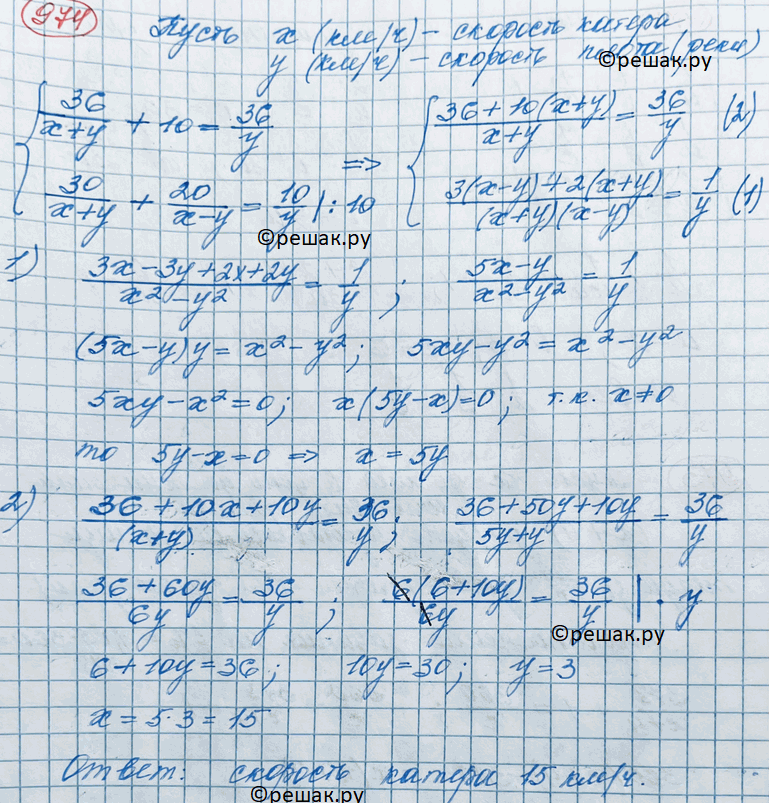 974
Пусть x (км/ч) – скорость катера
y (км/ч) – скорость плота (реки)
©решак.ру
{ 36/(x+y) + 10 = 36/y => { (36+10(x+y))/(x+y) = 36/y (2)
30/(x+y) + 20/(x-y) = 10/y |:10 (3(x-y)+2(x+y))/((x+y)(x-y)) = 1/y (1)
©решак.ру
1) (3x-3y+2x+2y)/(x²-y²) = 1/y ; (5x-y)/(x²-y²) = 1/y
(5x-y)y = x²-y²; 5xy-y² = x²-y²
5xy-x²=0; x(5y-x)=0; т.к. x≠0
то 5y-x=0 => x=5y
2) (36+10x+10y)/(x+y) = 36/y ; (36+50y+10y)/(5y+y) = 36/y
(36+60y)/6y = 36/y ; 6(6+10y)/6y = 36/y | · y
©решак.ру
6+10y=36; 10y=30; y=3
x = 5·3 = 15
Ответ: скорость катера 15 км/ч.
©решак.ру